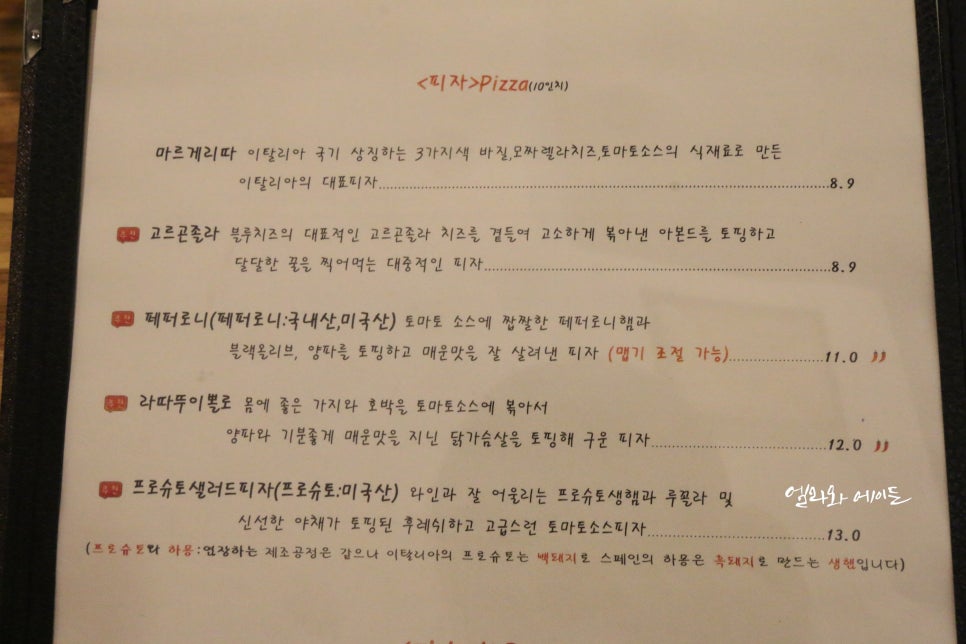 <피자>Pizza(10인치)
마르게리따 이탈리아 국기 상징하는 3가지색 바질,모짜렐라치즈,토마토소스의 식재료로 만든
이탈리아의 대표피자 8.9
추천 고르곤졸라 블루치즈의 대표적인 고르곤졸라 치즈를 곁들여 고소하게 볶아낸 아몬드를 토핑하고
달달한 꿀을 찍어먹는 대중적인 피자 8.9
추천 페퍼로니(페퍼로니:국내산,미국산) 토마토 소스에 짭짤한 페퍼로니햄과
블랙올리브, 양파를 토핑하고 매운맛을 잘 살려낸 피자 (맵기 조절 가능) 11.0
추천 라따뚜이뽈로 몸에 좋은 가지와 호박을 토마토소스에 볶아서
양파와 기분좋게 매운맛을 지닌 닭가슴살을 토핑해 구운 피자 12.0
추천 프로슈토샐러드피자(프로슈토:미국산) 와인과 잘 어울리는 프로슈토생햄과 루꼴라 및
신선한 야채가 토핑된 후레쉬하고 고급스런 토마토소스피자 13.0
(프로슈토와 하몽:염장하는 제조공정은 같으나 이탈리아의 프로슈토는 백돼지로 스페인의 하몽은 흑돼지로 만드는 생햄입니다)